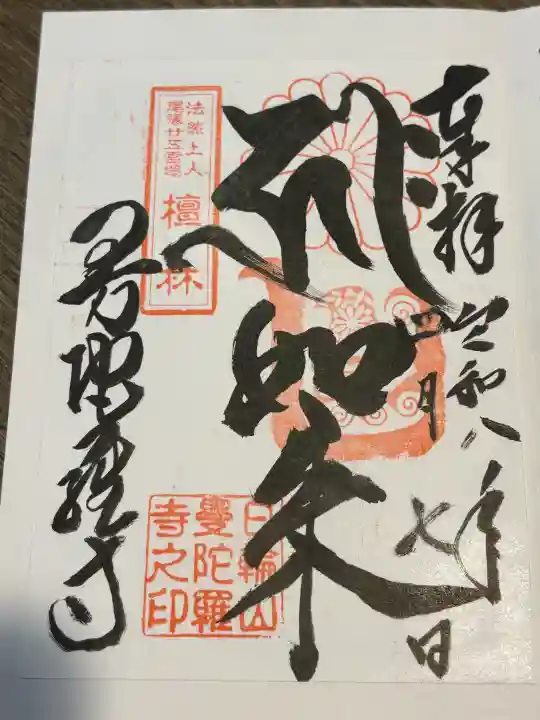 奉拝
令和八年
四月七日
如来
法然上人
尾張廿五霊場
檀林
曼陀羅寺
日輪山
曼陀羅
寺之印